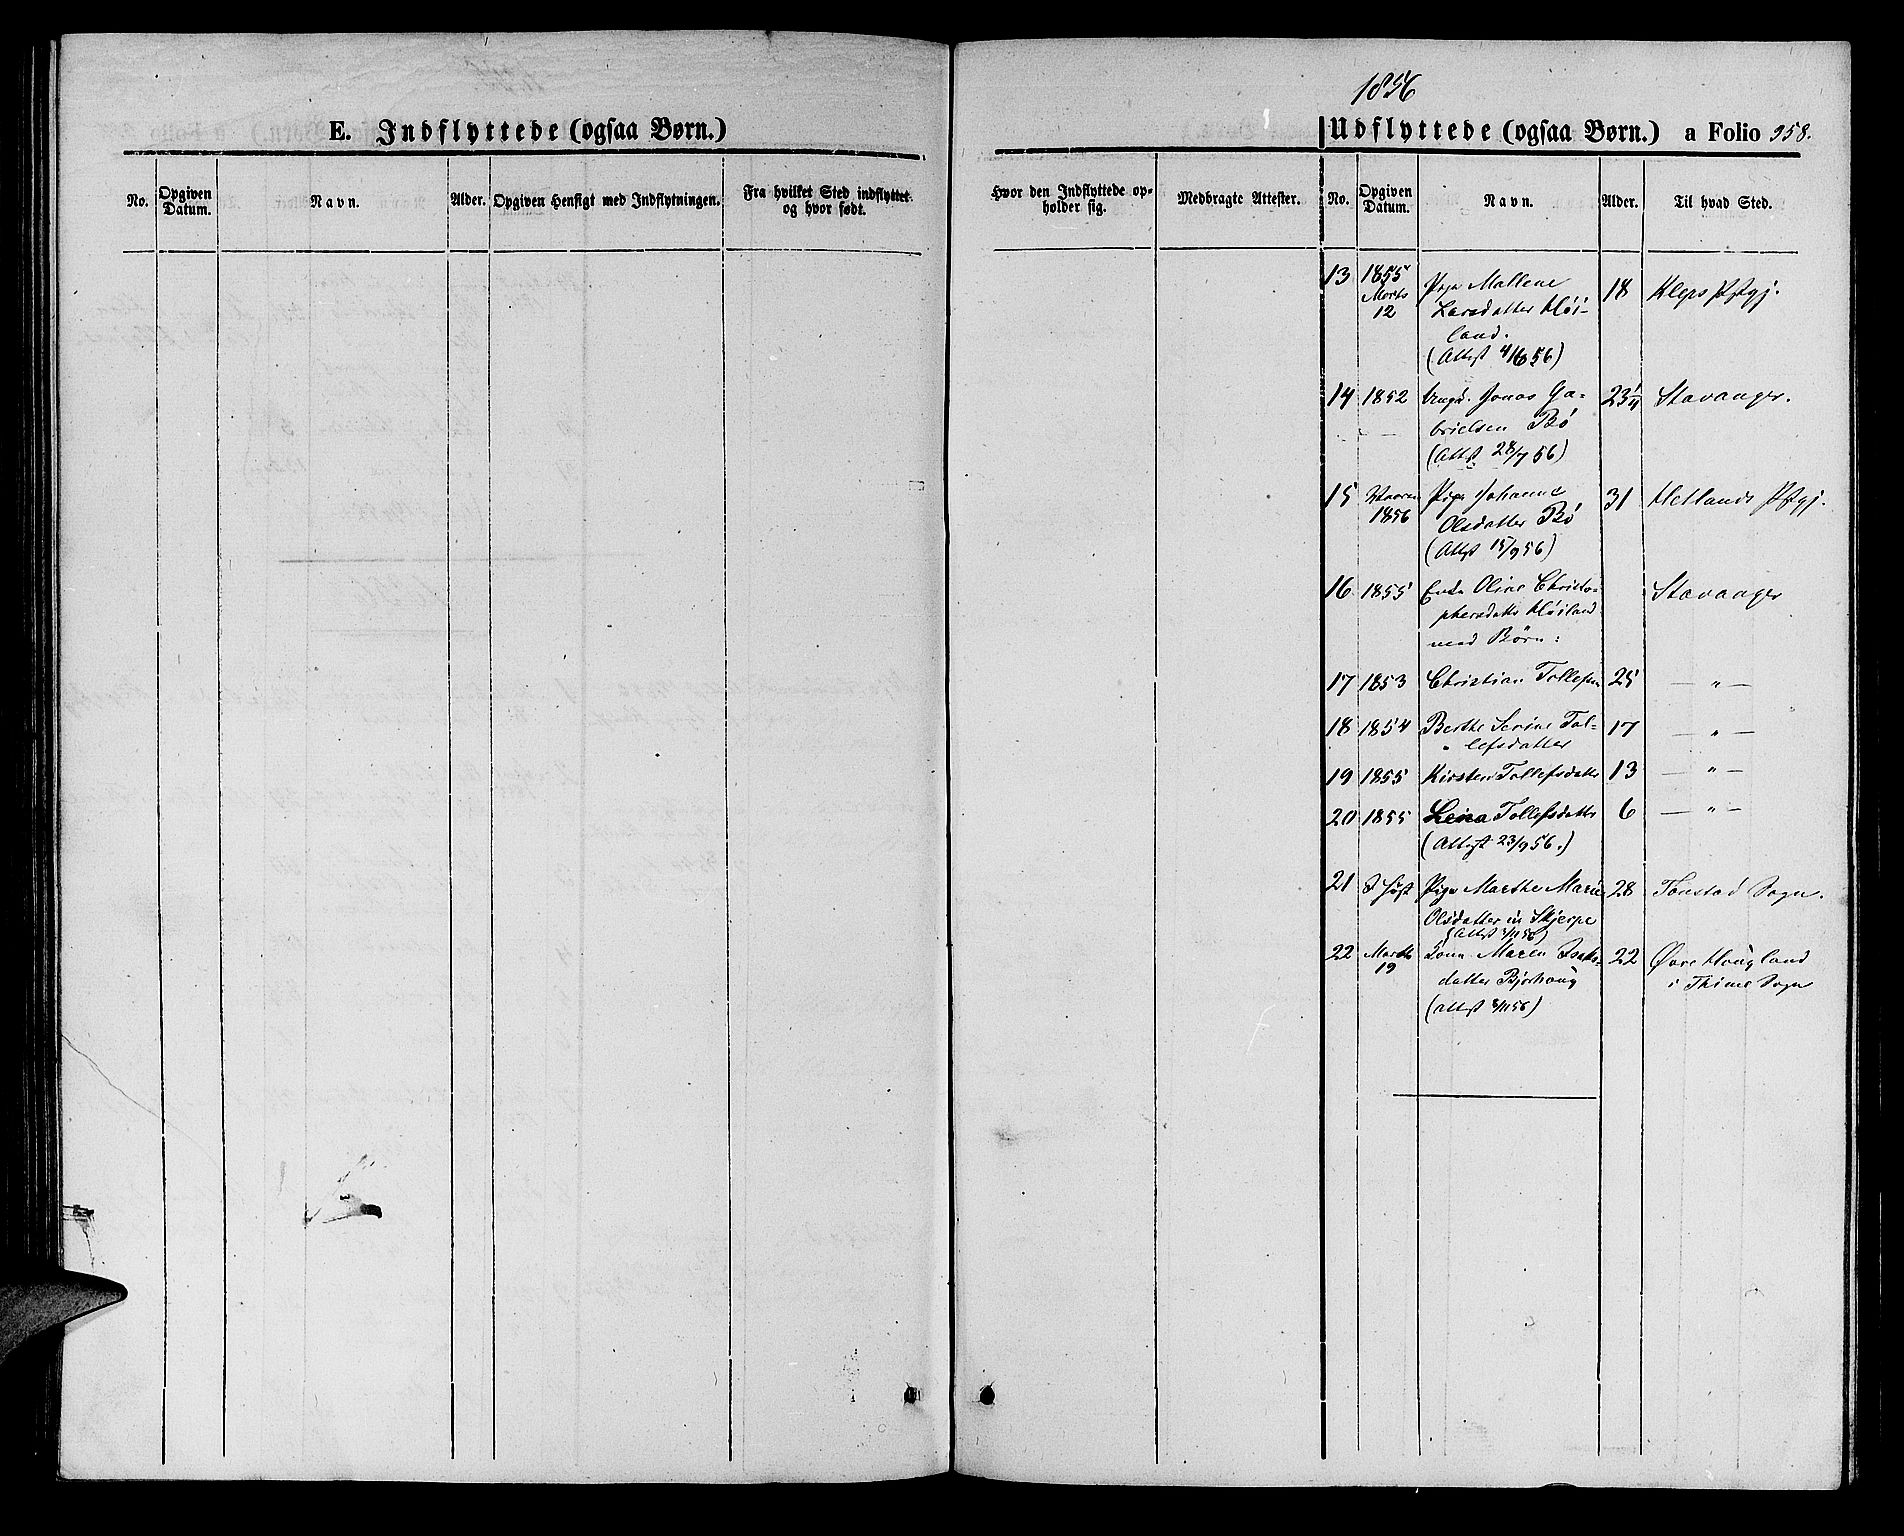 1856
E. Indflyttede (ogsaa Børn.)
Udflyttede (ogsaa Børn.) a Folio 958.
No. Opgiven Datum. Navn. Alder. Opgiven Hensigt med Indflytningen. Fra hvilket Sted indflyttet og hvor født.
Hvor den Indflyttede opholder sig. Medbragte Attester. No. Opgiven Datum. Navn. Alder. Til hvad Sted.
13 1855 Pige Mallene 18 Kleps Pstgj.
Marts Larsdatter Høi-
12 land.
(Attest 4/10 56)
14 1852 Ungk. Jonas Ga- 23 Stavanger.
brielsen Bø
(Attst 28/7 56)
15 Vaaren Pige Johanne 31 Hetlands Pstgj.
1856 Olsdatter Bø
(Attst 15/9 56)
16 1855 Enke Oline Christo- Stavanger
phersdatter Høiland
med Børn:
17 1853 Christian Tollefsen 25 — " —
18 1854 Berthe Serine Tol- 17 — " —
lefsdatter
19 1855 Kirsten Tollefsdatter 13 — " —
20 1855 Lena Tollefsdatter 6 — " —
(Attest 23/9 56.)
21 Pige Marthe Marie 28 Tonstad Sogn.
Olsdatter Skjerpe
(Attst 56)
22 Marts Maren Isaks- 22 Øvre Houglland
19 datter Bjorhoug i Thime Sogn
(attst 8/11 56)